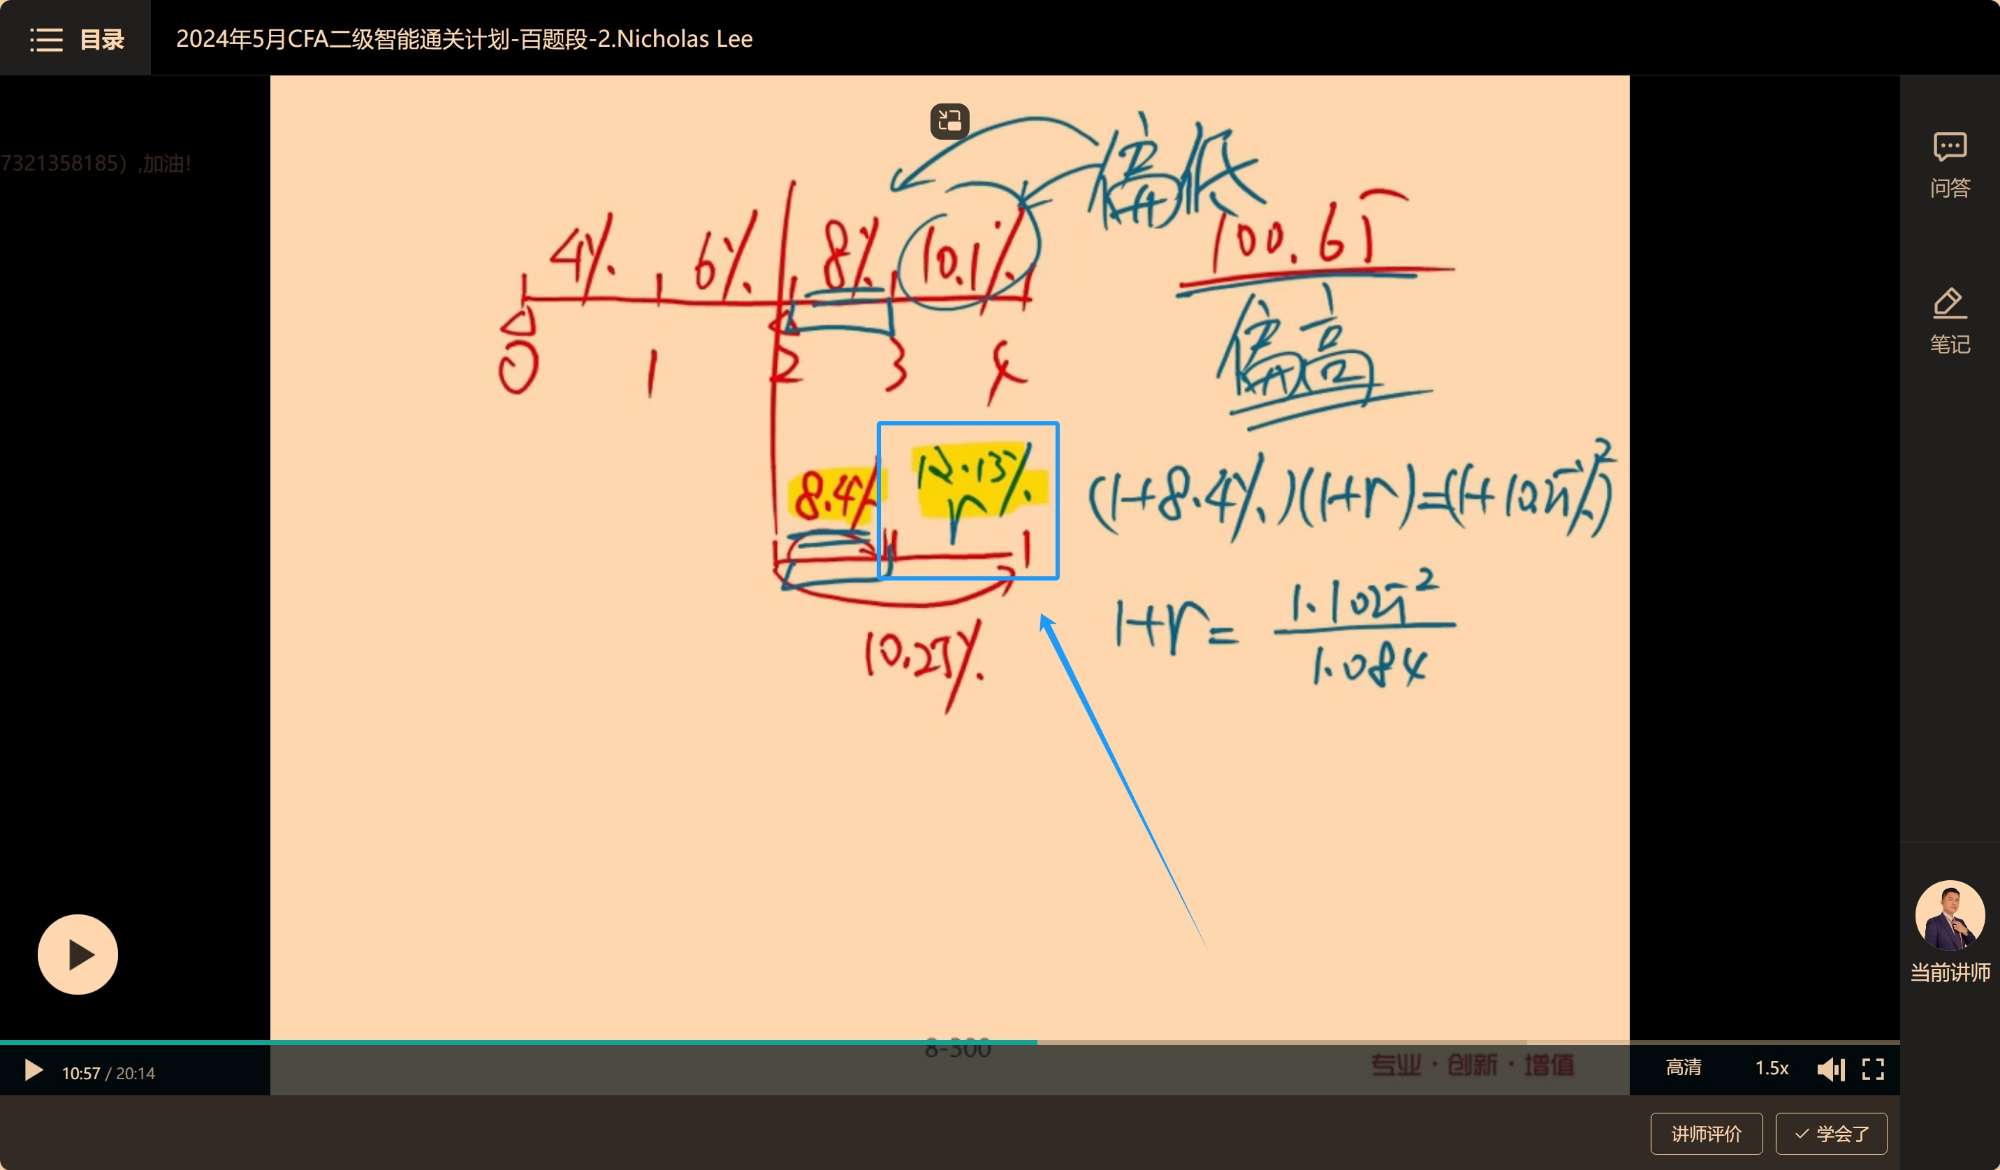 目录
2024年5月CFA二级智能通关计划-百题段-2.Nicholas Lee
7321358185）,加油!
问答
笔记
偏低
4% 6% 8% 10.1%
100.65
偏高
0 1 2 3 4
8.4% 12.13%
r
(1+8.4%)(1+r)=(1+10.25%)²
1+r= 1.1025² / 1.084
10.25%
当前讲师
8-300
专业·创新·增值
10:57 / 20:14
高清
1.5x
讲师评价
学会了